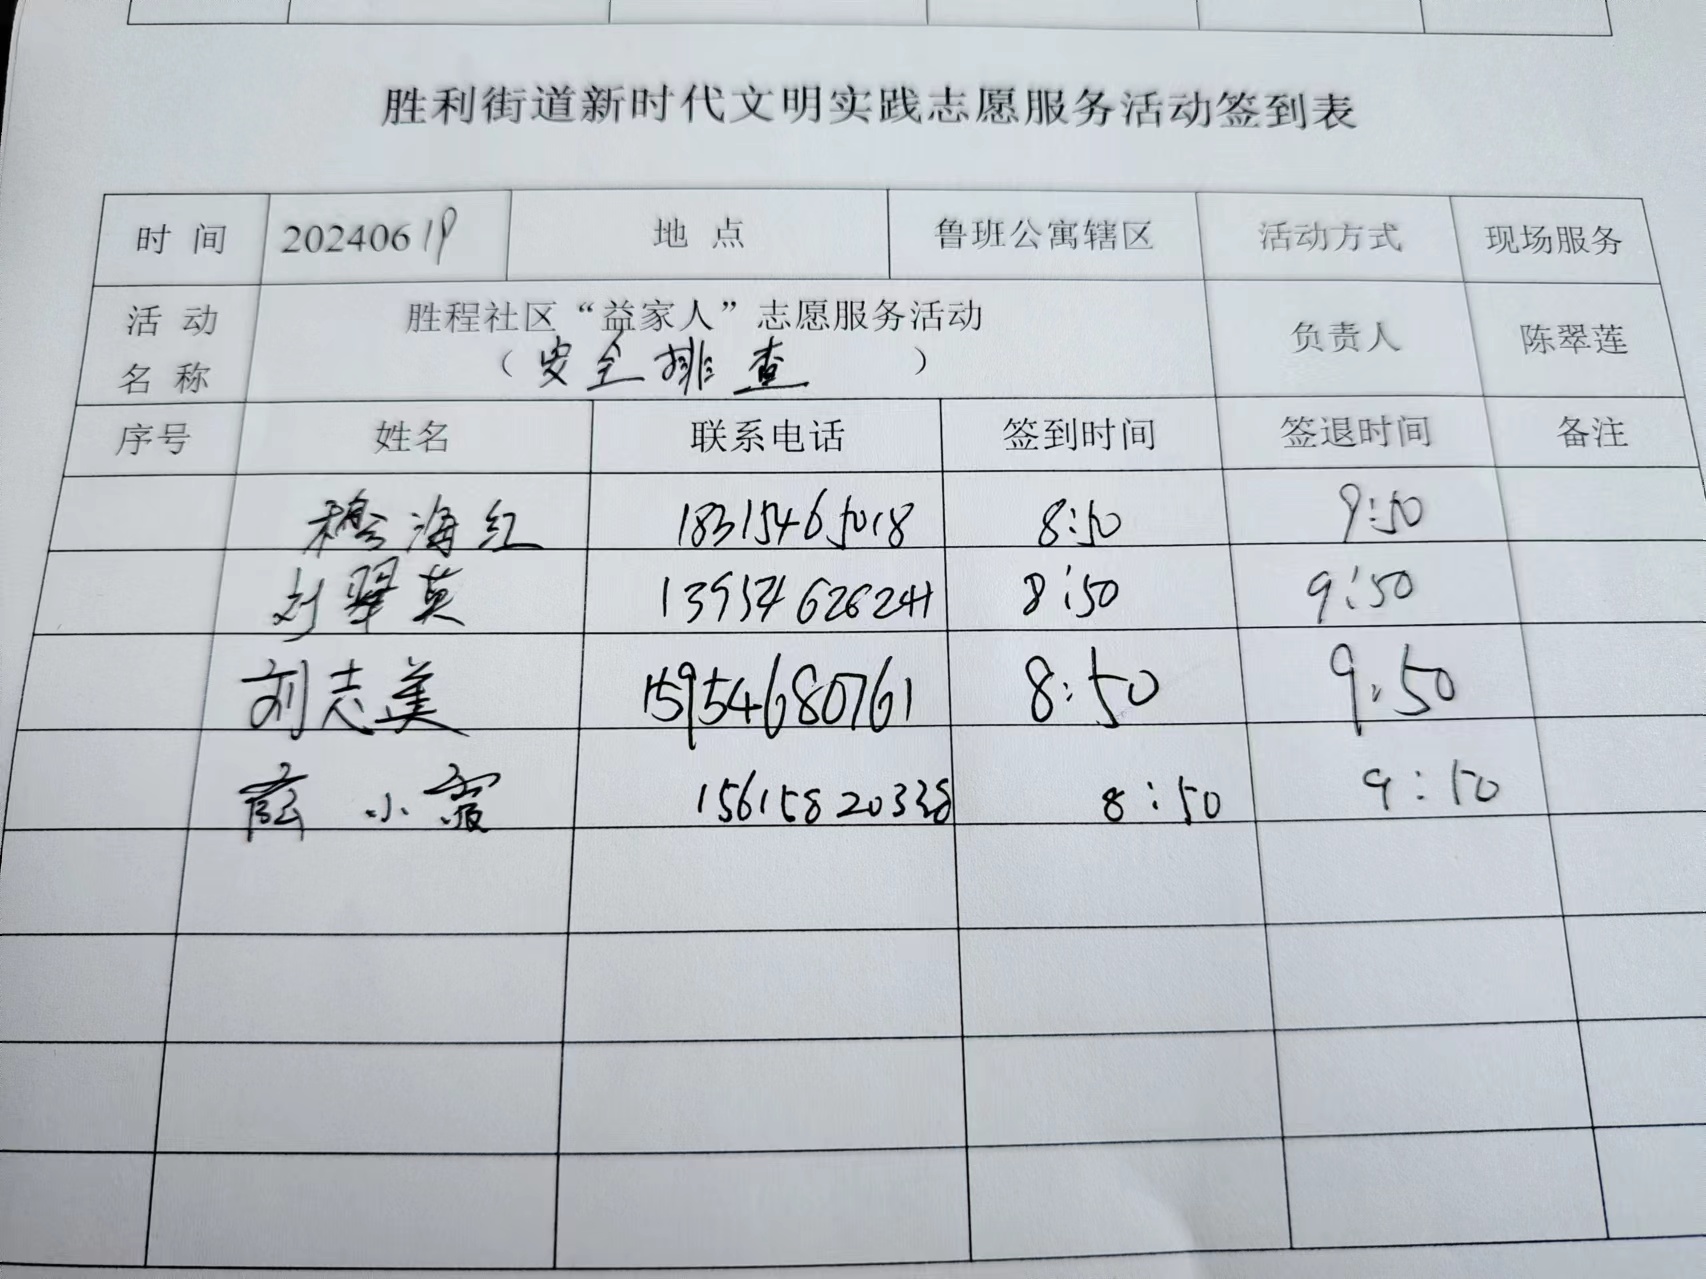 胜利街道新时代文明实践志愿服务活动签到表
时 间 20240619 地 点 鲁班公寓辖区 活动方式 现场服务
活 动 名 称 胜程社区“益家人”志愿服务活动 负责人 陈翠莲
（安全排查）
序号 姓名 联系电话 签到时间 签退时间 备注
穆海红 18315465018 8:50 9:50
刘翠英 13954626241 8:50 9:50
刘志美 15954680761 8:50 9:50
小霞 15615820338 8:50 9:50